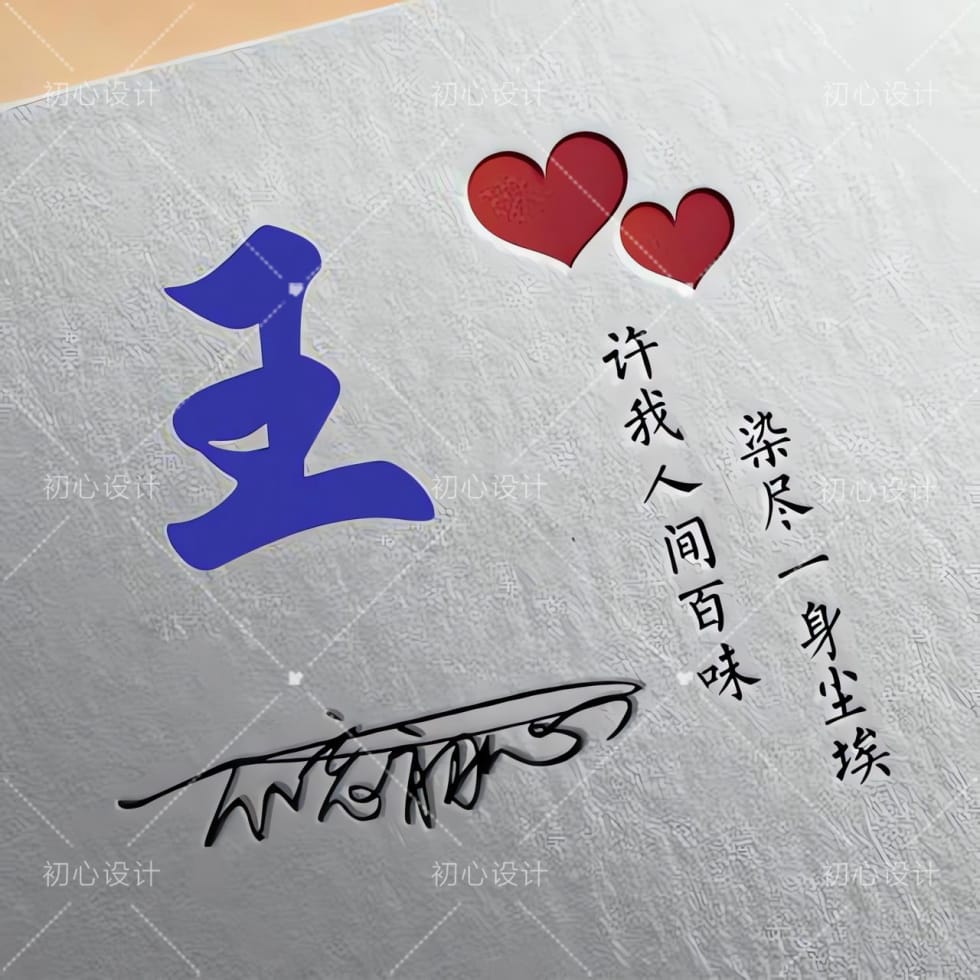 初心设计
初心设计
初心设计
王
许我人间百味
染尽一身尘埃
初心设计
初心设计
初心设计
初心设计
初心设计
初心设计